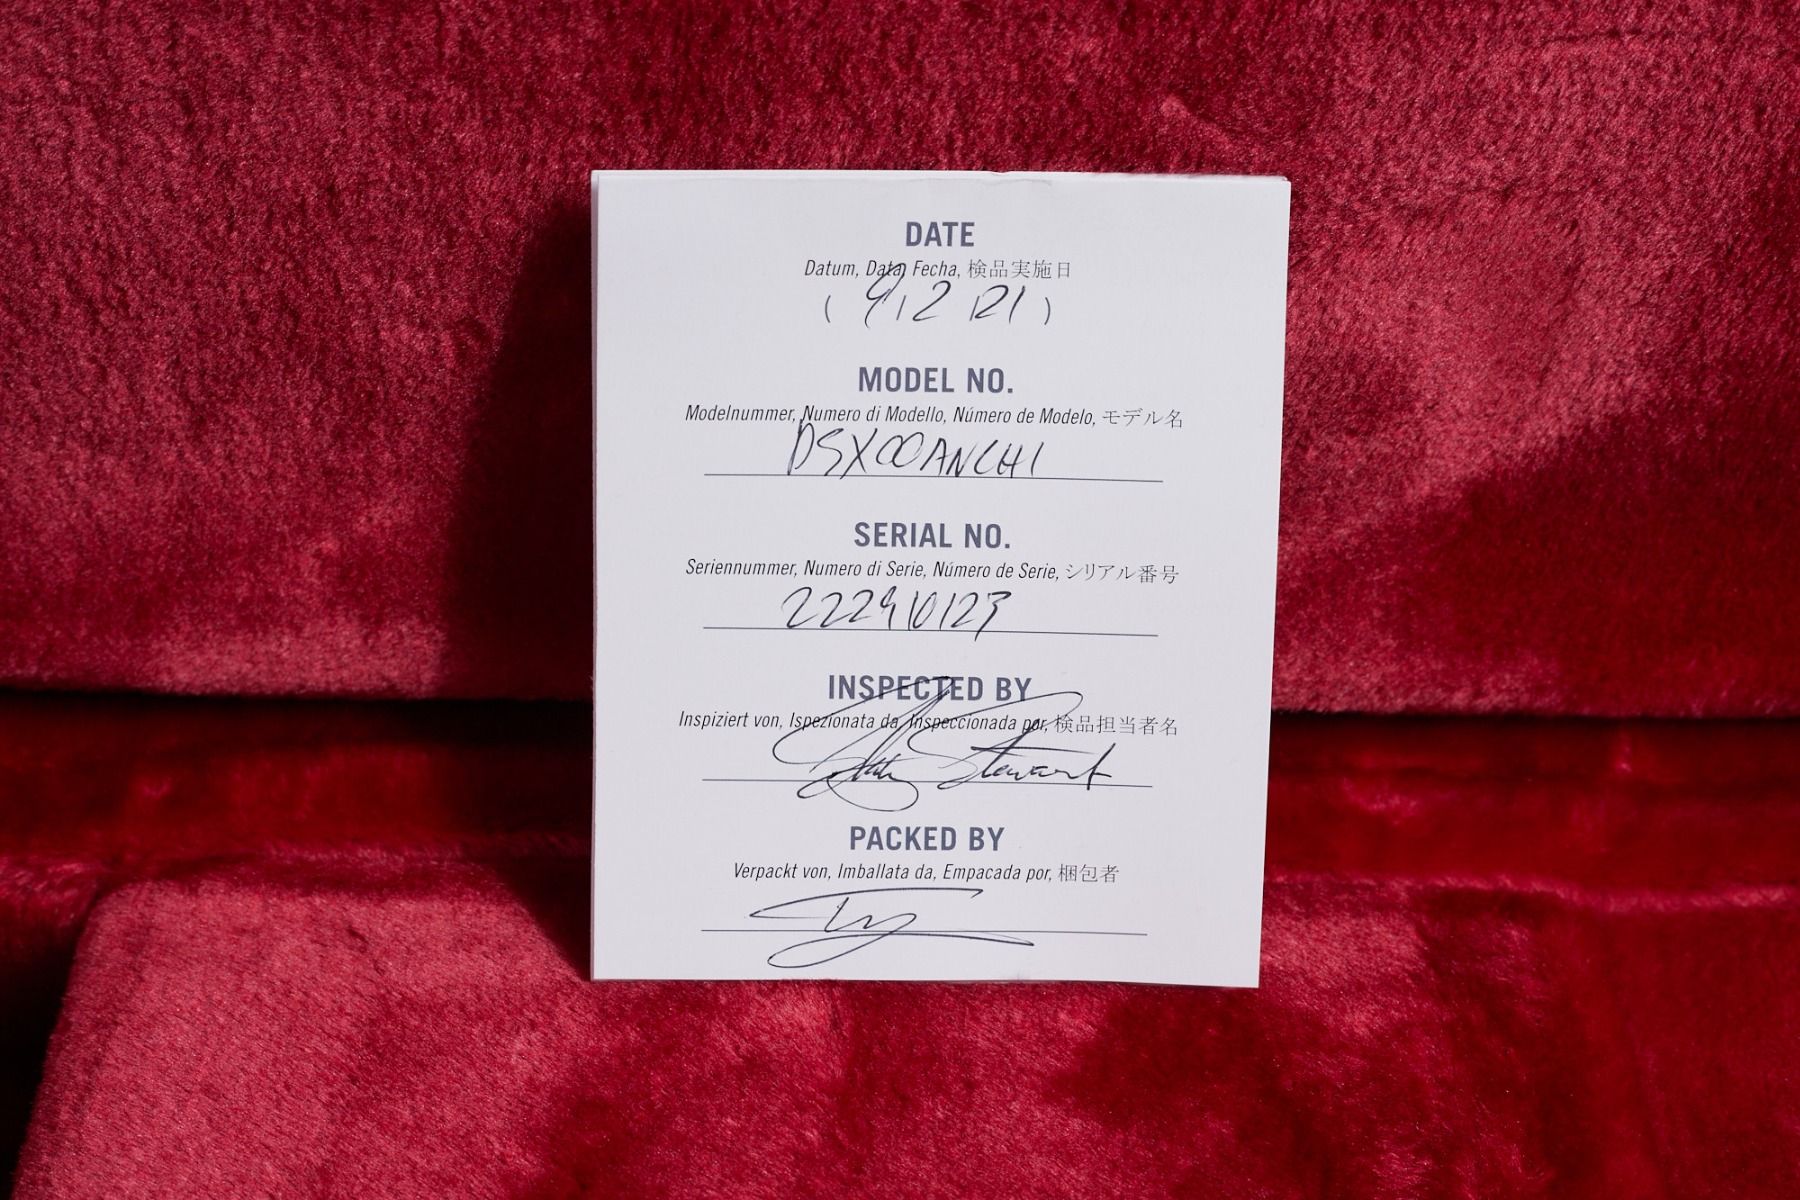 DATE
Datum, Data, Fecha, 検品実施日
( 9/2/21 )
MODEL NO.
Modelnummer, Numero di Modello, Número de Modelo, モデル名
DSX00ANCH1
SERIAL NO.
Seriennummer, Numero di Serie, Número de Serie, シリアル番号
222910123
INSPECTED BY
Inspiziert von, Ispezionata da, Inspeccionada por, 検品担当者名
Stewart
PACKED BY
Verpackt von, Imballata da, Empacada por, 梱包者